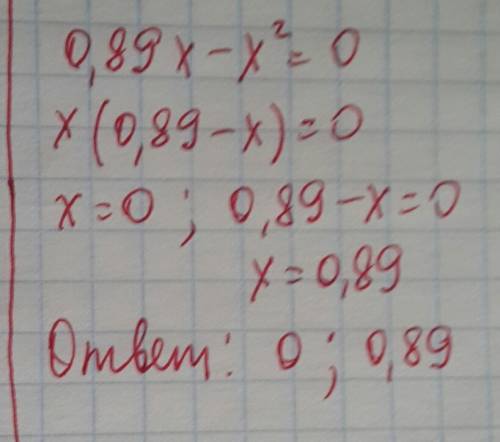 0,89x - x² = 0
x(0,89 - x) = 0
x = 0 ; 0,89 - x = 0
x = 0,89
Ответ: 0 ; 0,89